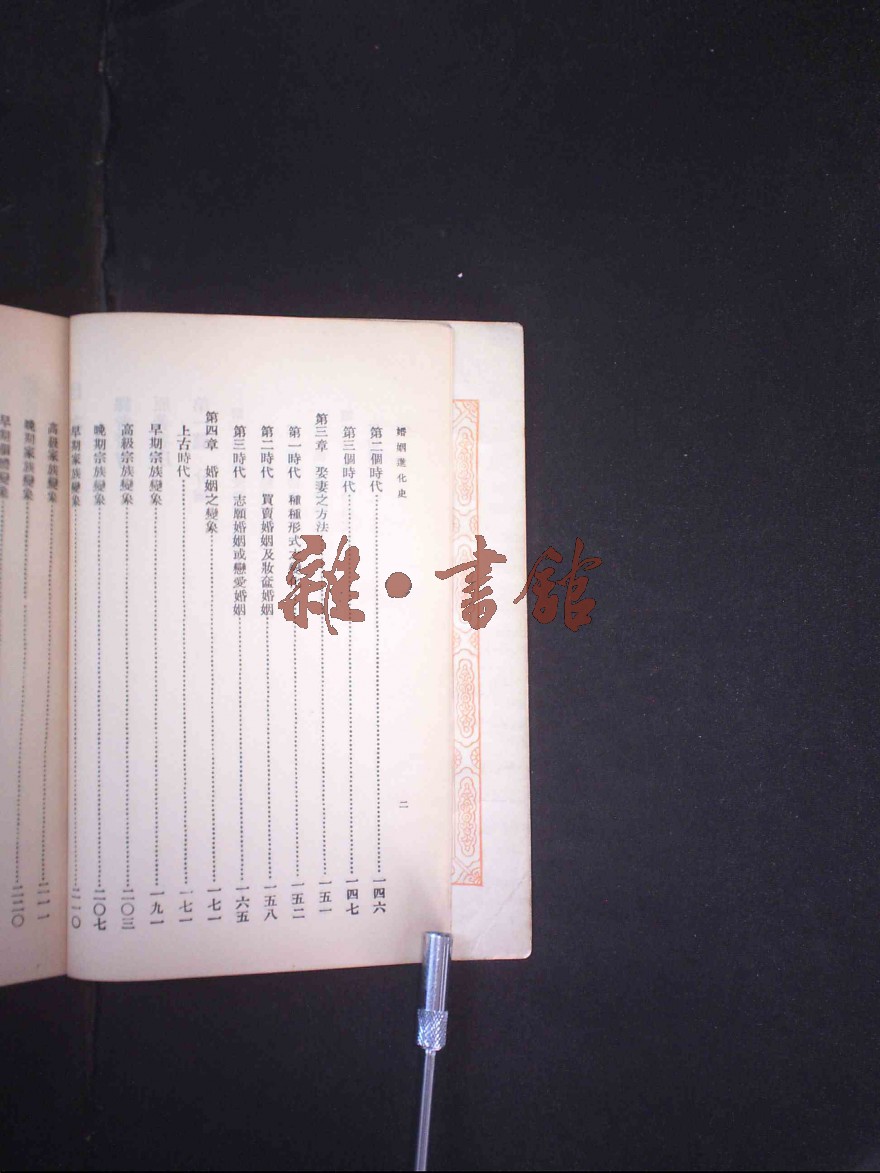 婚姻進化史
二
第二個時代……一四六
第三個時代……一四七
第三章 娶妻之方法……一五一
第一時代 種種形式之……一五二
第二時代 買賣婚姻及妝奩婚姻……一五八
第三時代 志願婚姻或戀愛婚姻……一六五
第四章 婚姻之變象……一七一
上古時代……一七一
早期宗族變象……一九一
高級宗族變象……二〇三
晚期宗族變象……二〇七
早期家族變象……二一〇
高級家族變象……二一一
晚期家族變象……二二〇
早期個體變象
雜·書館